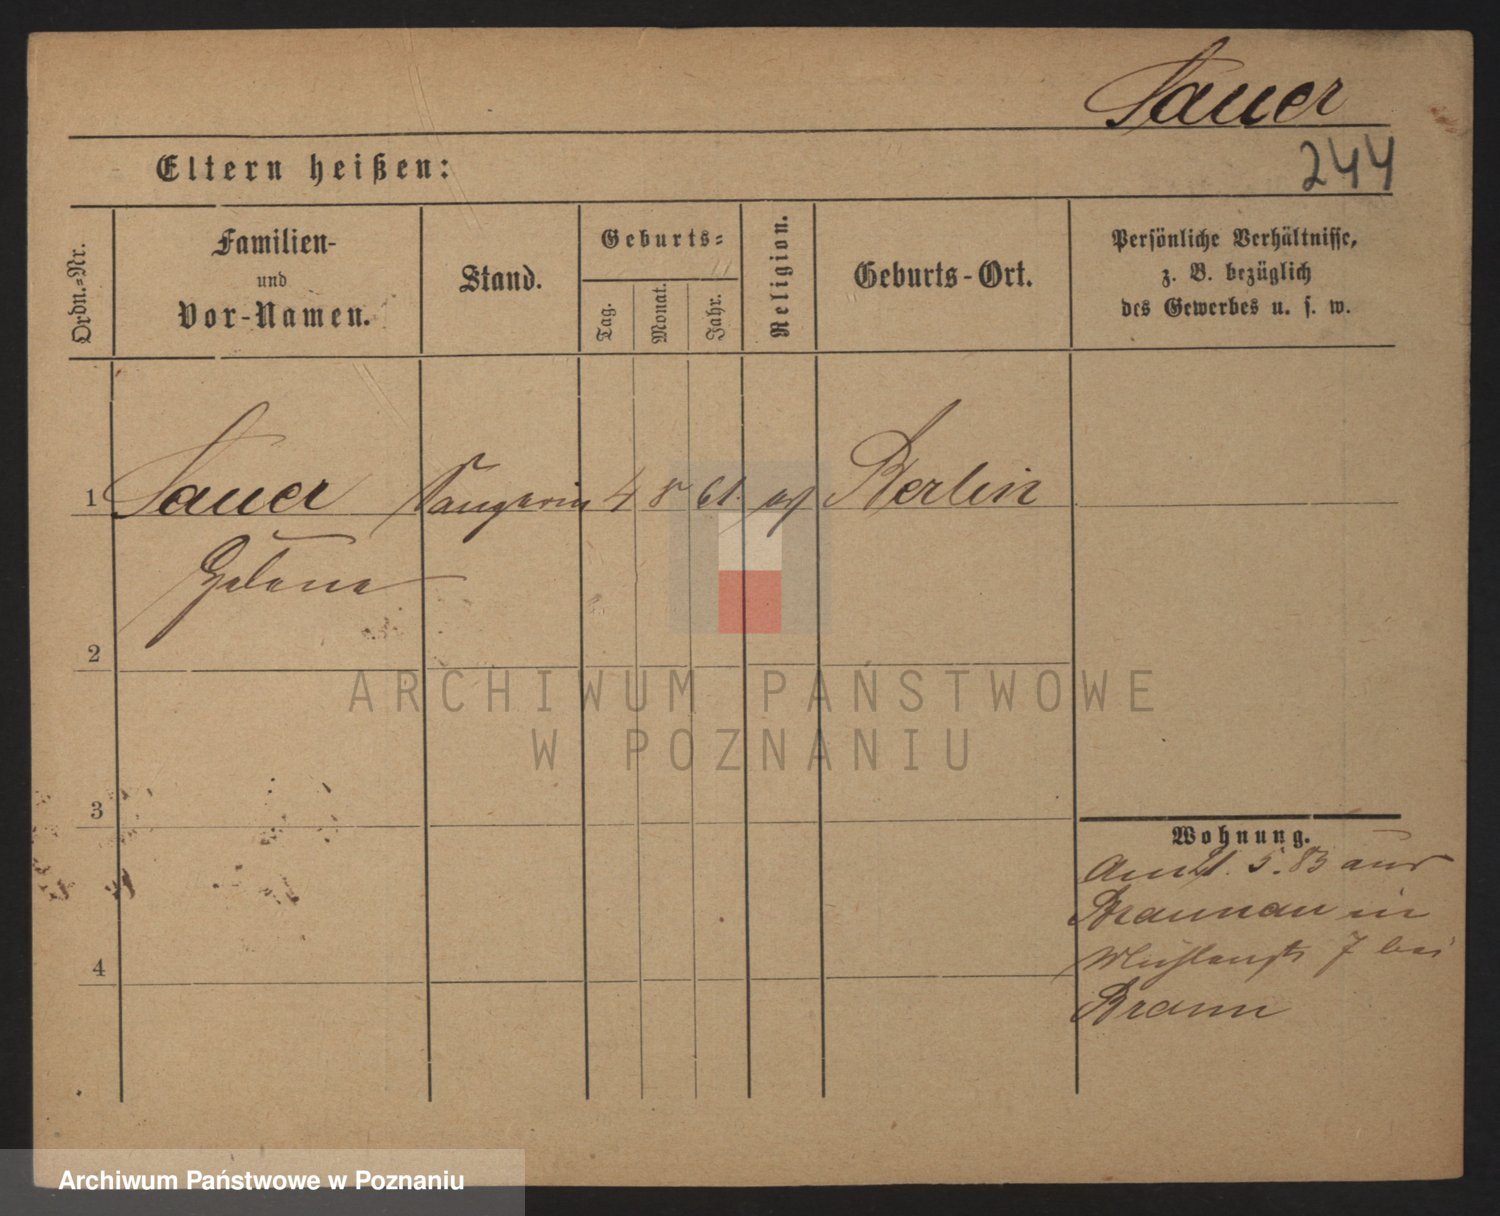 Sauer
Eltern heißen:
244
Ordn.-Nr.
Familien-
und
Vor-Namen.
Stand.
Geburts-
Tag.
Monat.
Jahr.
Religion.
Geburts-Ort.
Persönliche Verhältnisse,
z. B. bezüglich
des Gewerbes u. s. w.
1 Sauer Sängerin 4 8 61. Berlin
Helene
2
ARCHIWUM PAŃSTWOWE
W POZNANIU
3
Wohnung.
Am 21. 5. 83 aus
Braunau in
7 bei
Braun
4
Archiwum Państwowe w Poznaniu